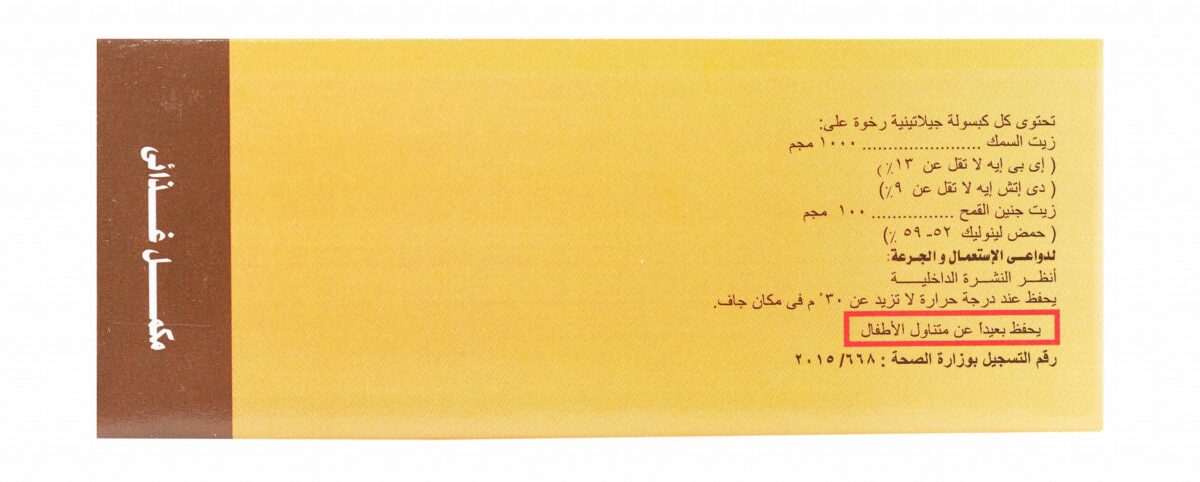 تحتوى كل كبسولة جيلاتينية رخوة على:
زيت السمك ....................... ١٠٠٠ مجم
( إى بى إيه لا تقل عن ١٣٪)
( دى إتش إيه لا تقل عن ٩٪)
زيت جنين القمح ................ ١٠٠ مجم
( حمض لينوليك ٥٢- ٥٩ ٪)
لدواعـى الإستعمـال و الجـرعة:
أنظـر النشـرة الداخليـــة
يحفظ عند درجة حرارة لا تزيد عن ٣٠° م فى مكان جاف.
يحفظ بعيداً عن متناول الأطفال
رقم التسجيل بوزارة الصحة : ٢٠١٥/٦٦٨
مكمـــل غـــذائى